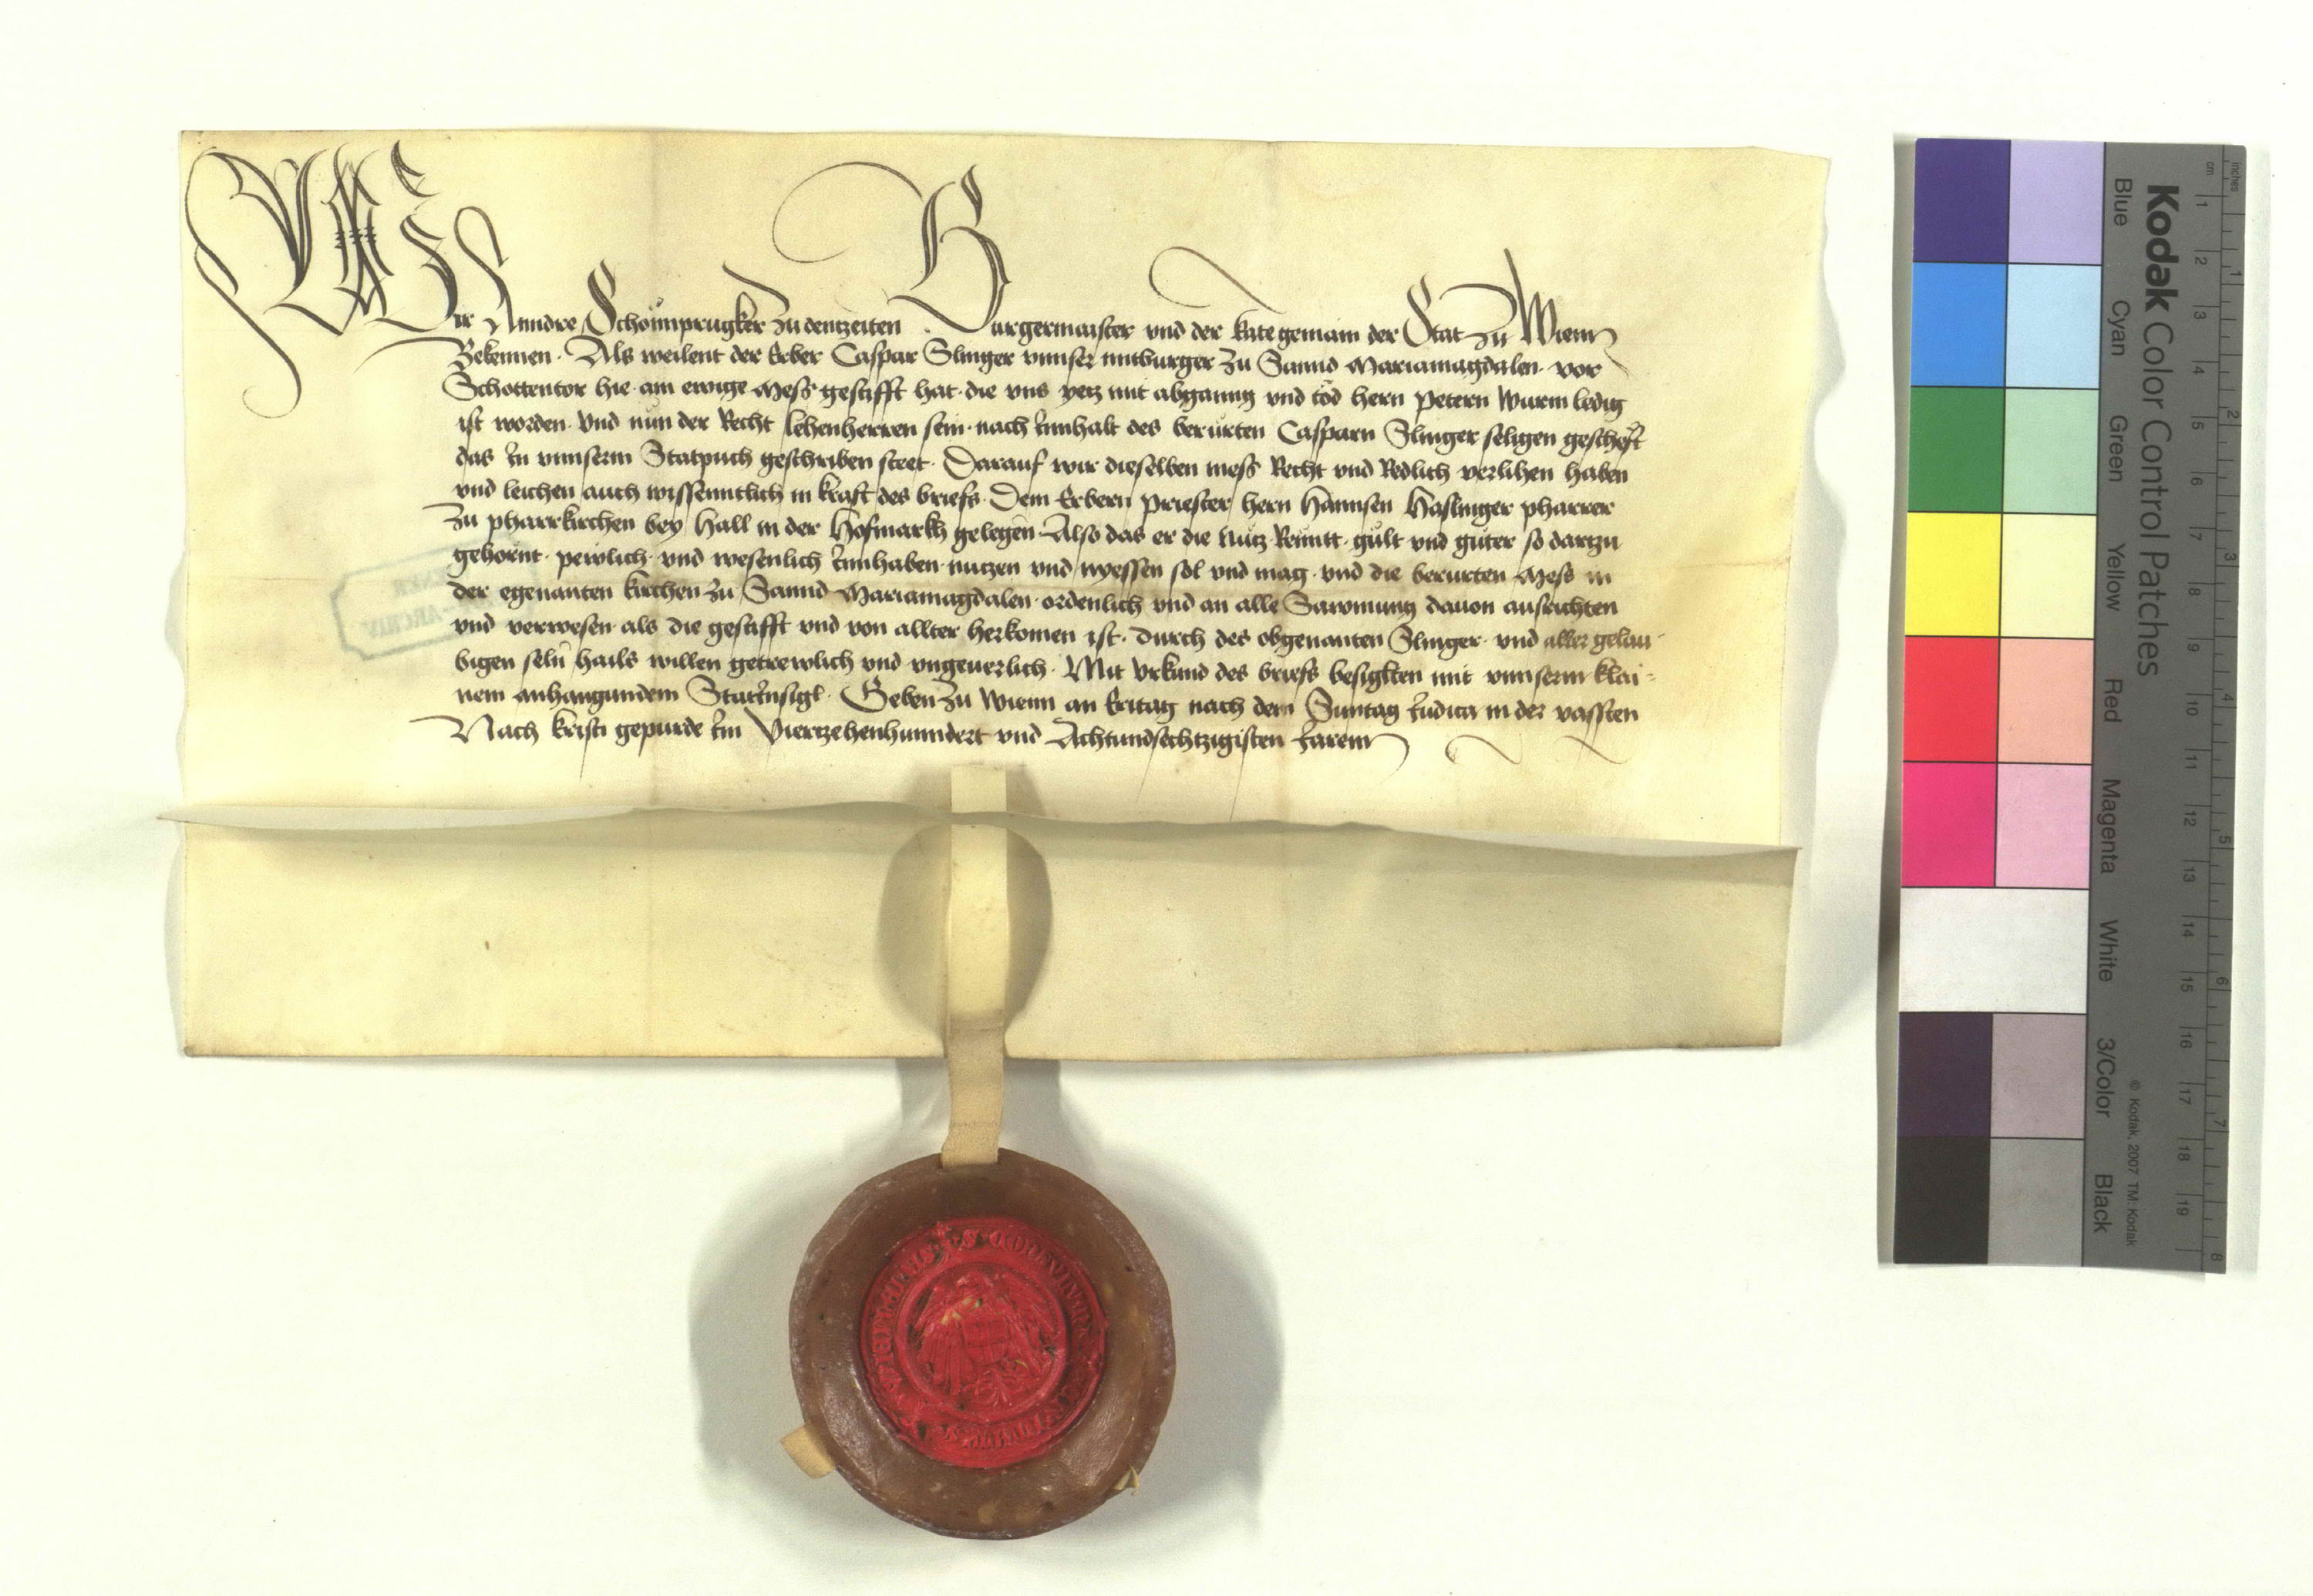 Wir Anndre Schönnprugker zu den zeiten Burgermaister vnd der Rate gemain der Stat zu Wienn
Bekennen. Als weilent der Erber Caspar Slinger vnnser mitburger zu Sannd Mariamagdalen vor
Schottentor hie ain ewige Mess gestifft hat. die vns yetz mit abganng vnd tod hern Petern Wurm ledig
ist worden. Vnd nün der Recht lehenherren sein. nach Innhalt des berürten Casparn Slinger seligen gescheft
das In vnnserm Statpuch geschriben steet. Darauf wir dieselben mess Recht vnd Redlich verlihen haben
vnd leichen auch wissenntlich in kraft des briefs. Dem Erbern priester hern Hannsen Haslinger pharrer
zu pharrkirchen bey Hall in der Hofmarkh gelegen. Also das er die Nutz. Rennt. gült vnd güter so dartzu
gehornt. pewlich. vnd wesenlich Innhaben. nutzen vnd nyessen sol vnd mag. vnd die berurten Mess in
der egenanten kirchen zu Sannd Mariamagdalen. ordenlich vnd an alle Sawmung dauon ausrichten
vnd verwesen. als die gestifft vnd von allter herkomen ist. durch des obgenanten Slinger. vnd aller gelau-
bigen seln hails willen getrewlich vnd vngeuerlich. Mit Vrkund des briefs besiglten mit vnnserm klai-
nem anhangundem StatInsigl. Geben zu Wienn an Eritag nach dem Suntag Judica in der vassten
Nach kristi gepurde Im Viertzehenhunndert vnd Achtundsechtzigisten Jaren
ARCHIV
Kodak Color Control Patches
Blue Cyan Green Yellow Red Magenta White 3/Color Black
© Kodak, 2007 TM: Kodak
inches 1 2 3 4 5 6 7 8
cm 1 2 3 4 5 6 7 8 9 10 11 12 13 14 15 16 17 18 19